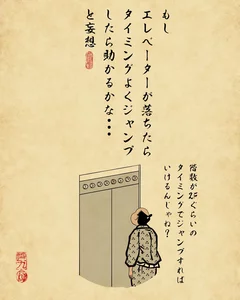 もし
エレベーターが落ちたら
タイミングよくジャンプ
したら助かるかな・・・
と妄想
階数が2Fぐらいの
タイミングでジャンプすれば
いけるんじゃね?